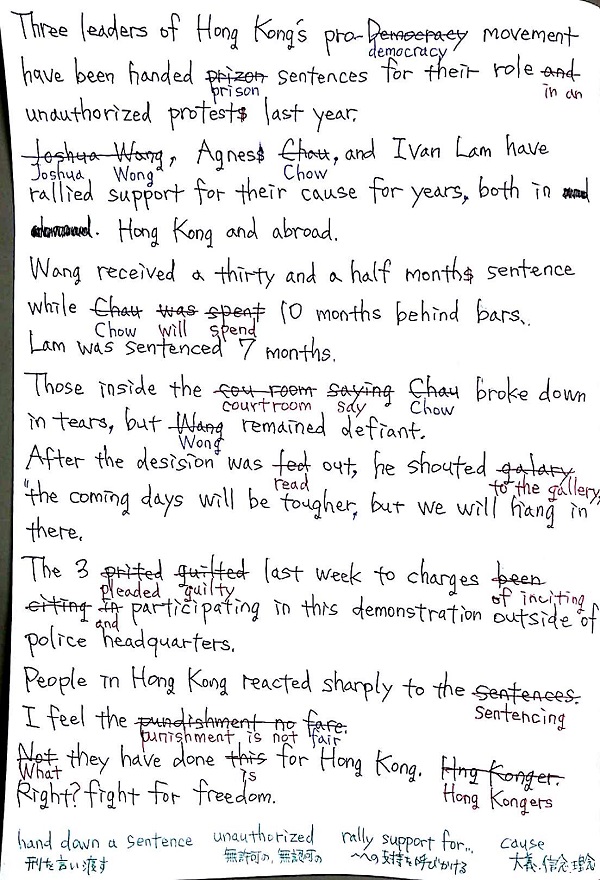 Three leaders of Hong Kong's pro-Democracy movement
democracy
have been handed prizon sentences for their role and
prison in an
unauthorized protests last year.
Joshua Wang, Agness Chau, and Ivan Lam have
Joshua Wong Chow
rallied support for their cause for years, both in
Hong Kong and abroad.
Wang received a thirty and a half months sentence
while Chau was spent 10 months behind bars.
Chow will spend
Lam was sentenced 7 months.
Those inside the cou room saying Chau broke down
courtroom say Chow
in tears, but Wang remained defiant.
Wong
After the desision was fed out, he shouted galary
read to the gallery,
"the coming days will be tougher, but we will hang in
there.
The 3 prited guilted last week to charges been
pleaded guilty of inciting
citing in participating in this demonstration outside of
and
police headquarters.
People in Hong Kong reacted sharply to the sentences.
Sentencing
I feel the pundishment no fare.
punishment is not fair
Not they have done this for Hong Kong. Hng Konger.
What is
Right? fight for freedom. Hong Kongers
hand down a sentence unauthorized rally support for.. cause
刑を言い渡す 無許可の、無認可の 〜への支持を呼びかける 大義、信念、理念